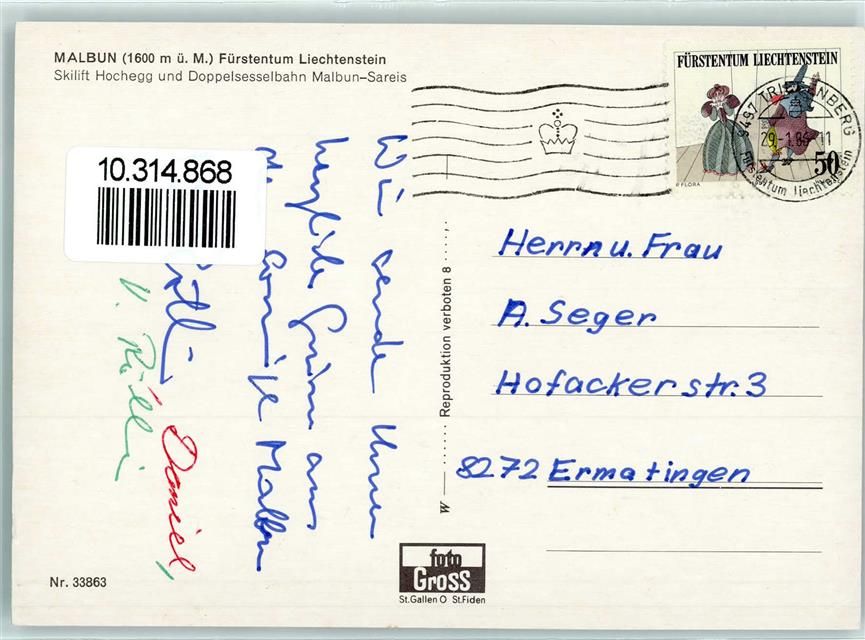 MALBUN (1600 m ü. M.) Fürstentum Liechtenstein
Skilift Hochegg und Doppelsesselbahn Malbun–Sareis
FÜRSTENTUM LIECHTENSTEIN
50
FLORA
9497 TRIESENBERG
29.-1.86-11
Fürstentum Liechtenstein
10.314.868
Wir sende Ihnen
herzliche Grüsse aus
sonnige Malbun
Daniel,
Herrn u. Frau
A. Seger
Hofackerstr. 3
8272 Ermatingen
W Reproduktion verboten 8
foto
Gross
St.Gallen O St.Fiden
Nr. 33863